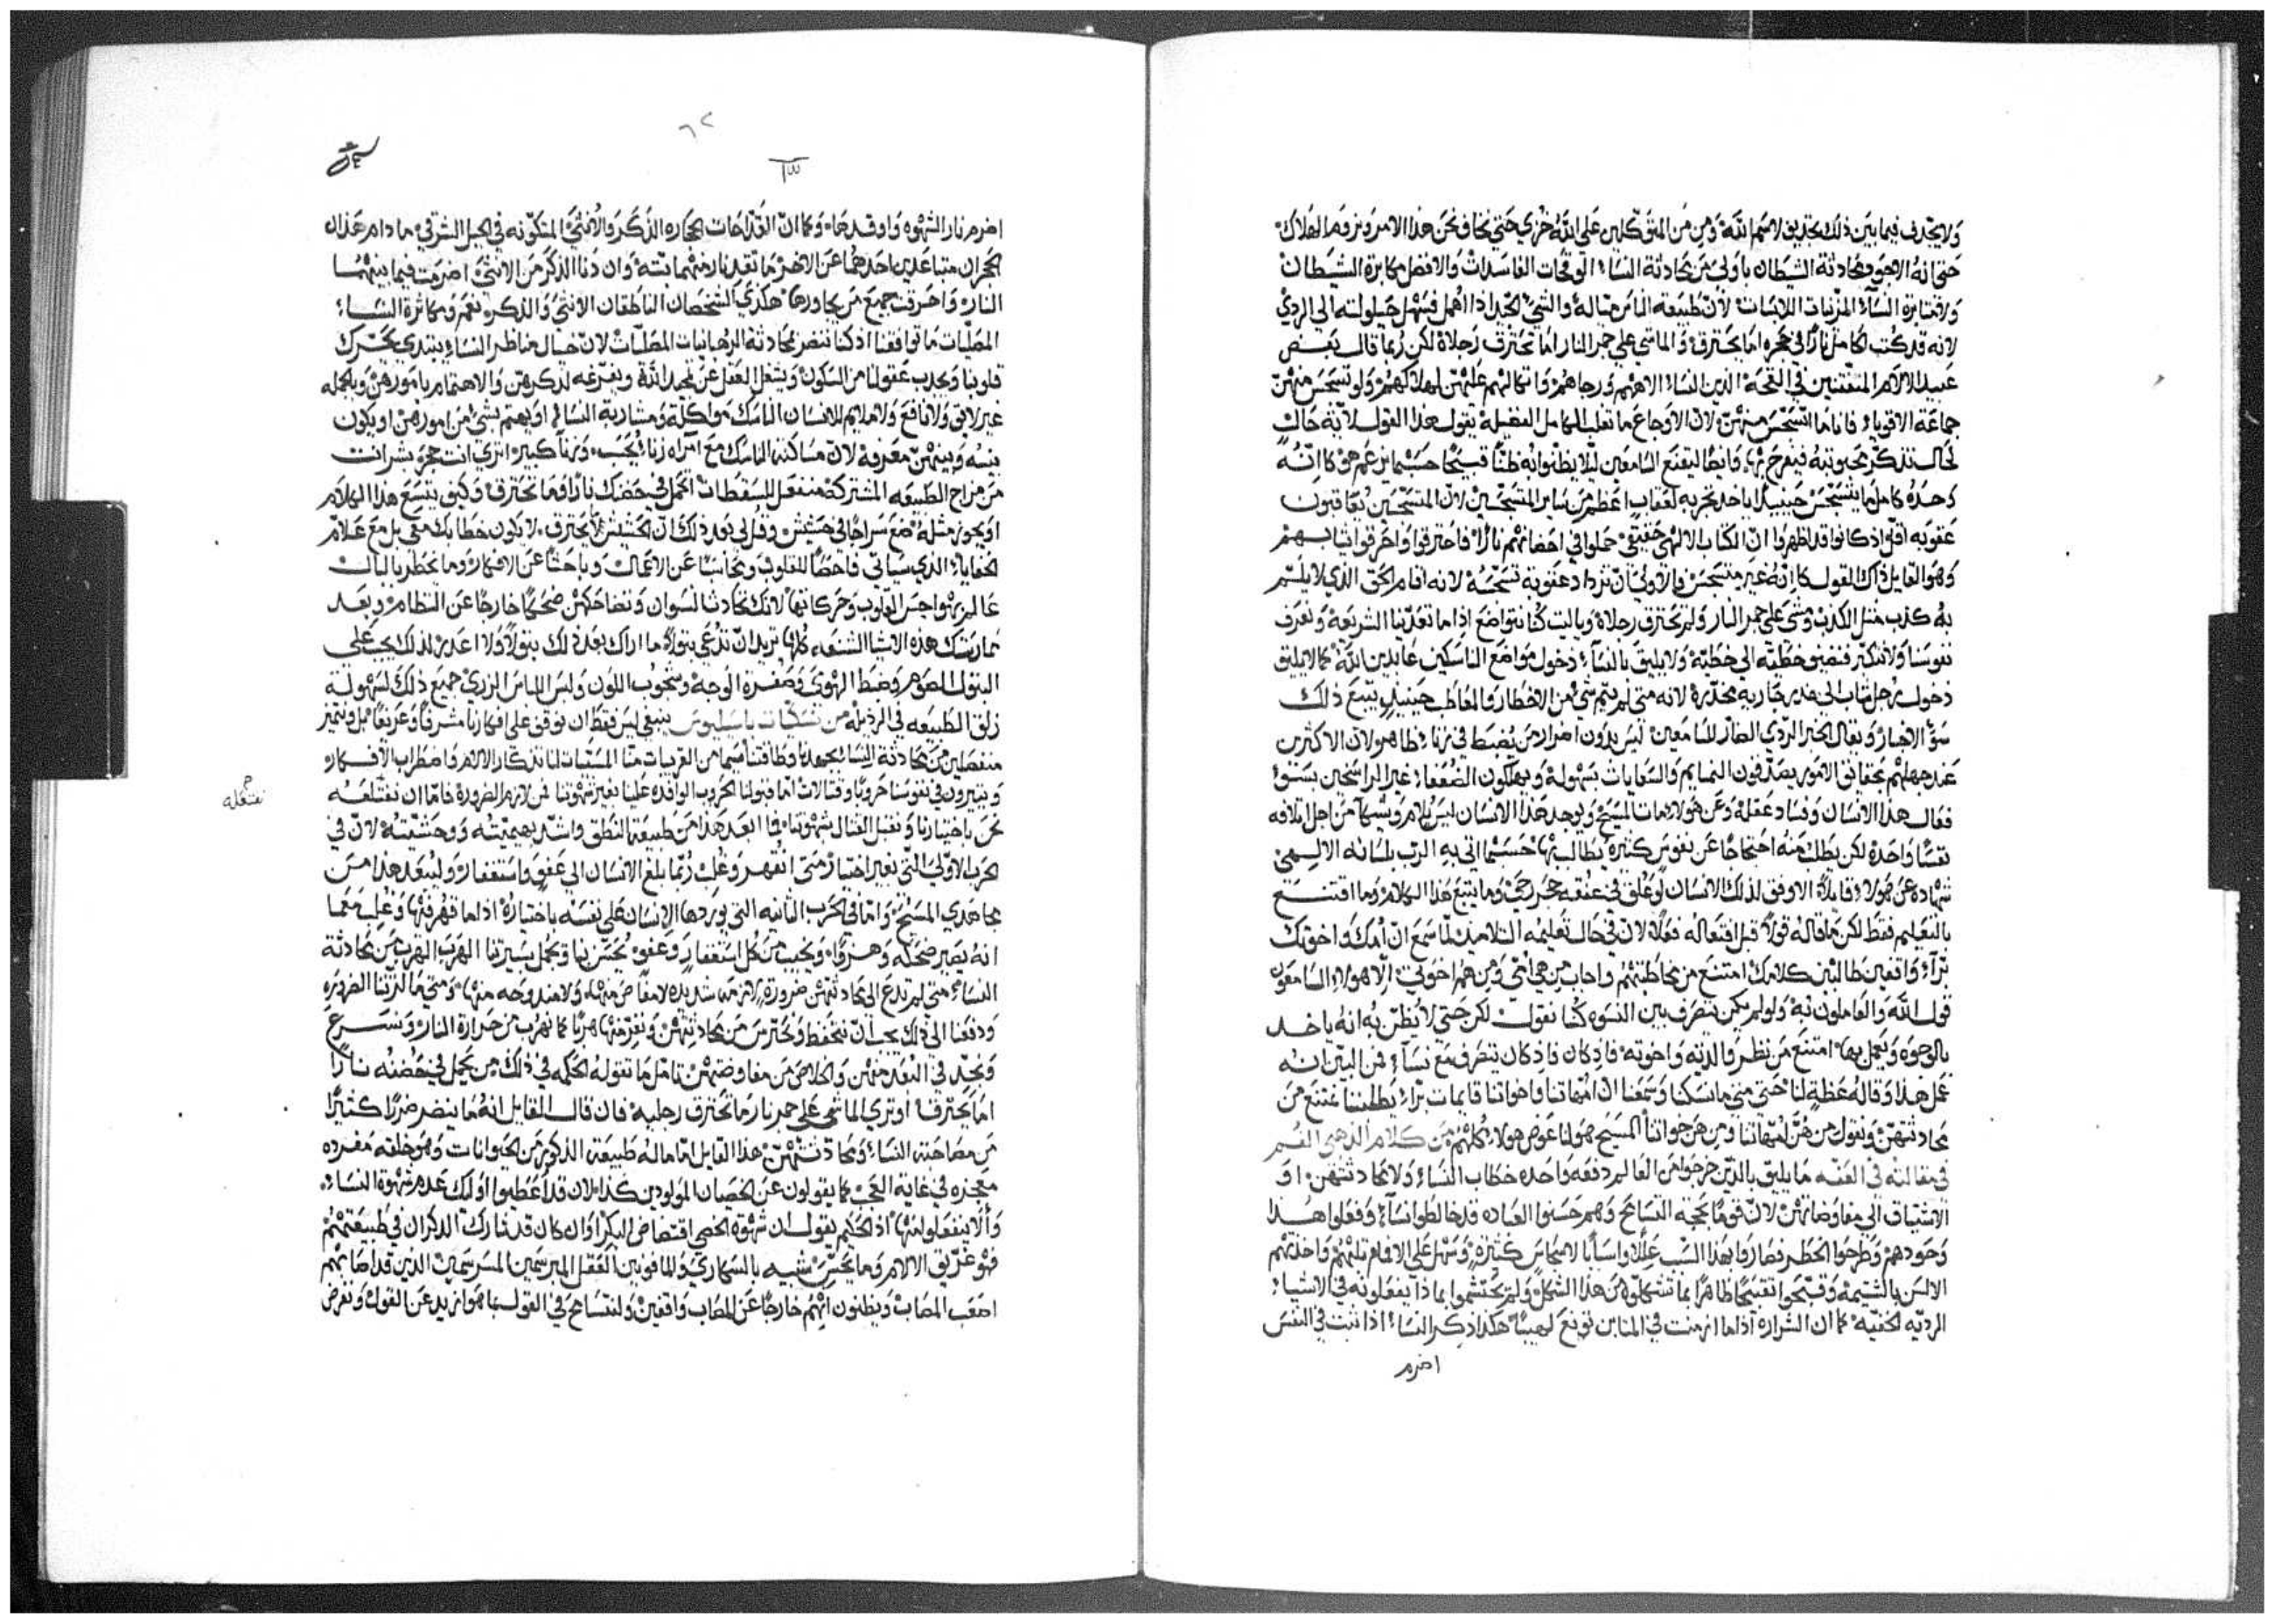 ولا يجدف فيما بين ذلك بتجديف لاسم الله ومن من المتوكلين على الله خزي حتى نخاف نحن هذا الامر ونروم الهلاك
حتى انه الاجود محادثة الشيطان باولى من محادثة النساء الوقحات الفاسدات والافضل مكابرة الشيطان
ولا مثابرة النساء المزينات اللابسات لان طبيعة الناس ميالة والشيء الجيد اذا اهمل فيسهل حيلولته الى الردي
لانه قد كتب لكامل نارا في حجره اما يحترق والماشي على جمر النار اما تحترق رجلاه لكن ربما قال بعض
عبيد الالام المتفننين في القحة الذين النساء الاههم ورجاهم واتكالهم عليهن لهلاكهم ولو تسجس منهن
جماعة الاقوياء فانا ما اتسجس منهن لان الاوجاع ما تغلب الكامل الفضيلة يقول هذا القول لانه حال
لحال تذكر محبوبته فيفرح بها وايضا ليقنع السامعين ليلا يظنوا به ظنا قبيحا حسبما يزعم هو كانه
وحده كاملا ما يتسجس حينيذ ياخد تجربه لعقاب اعظم من ساير المتسجسين لان المتسجسين يعاقبون
عقوبه اقل اذ كانوا قد اظهروا ان الكتاب الالهي حقيقي حملوا في احضانهم نارا فاحترقوا واحرقوا ثيابهم
وهو القايل ذاك القول كانه غير متسجس فالاولى ان تزداد عقوبة تسجسه لانه اقام الحق الذي لا يلتم
به كذب مثل الكذب ومشى على جمر النار ولم تحترق رجلاه ويا ليت كنا نتواضع اذا ما تعدينا الشريعة ونعرف
نفوسنا ولا نتكبر فنضيف خطيه الى خطيه ولا يليق بالنساء دخول مواضع الناسكين عابدين الله كما لا يليق
دخول رجل شاب الى خدر جاريه مخدرة لانه متى لم يتم شي من الاخطار والمعاطب حينيذ يتبع ذلك
سو الاخبار ويقال الخبر الردي الضار للسامعين ليس بدون اضرار من يضبط في زناء ظاهر لان الاكثرين
عند جهلهم بحقايق الامور يصدقون النمايم والسعايات بسهولة ويهلكون الضعفا غير الراسخين بسو
فعال هذا الانسان وفساد عقله وعن هولاء مات المسيح ويوجد هذا الانسان ليس يلام ويشكا من اجل اتلافه
نفسا واحدة لكن يطلب منه احتجاجا عن نفوس كثيرة يطالب بها حسبما اتى به الرب بلسانه الالهي
شهاده عن هولاء قايلا الاوفق لذلك الانسان لو علق في عنقه حجر رحى وما يتبع هذا الكلام وما اقتنع
بالتعليم فقط لكن ما قاله قولا قبل افتعاله فعلا لان في حال تعليمه التلاميذ لما سمع ان امك واخوتك
براء واقفين طالبين كلامك امتنع من مخاطبتهم واجاب من هي امي ومن هم اخوتي الا هولاء السامعون
قول الله والعاملون به ولو لم يكن يتصرف بين النسوه كنا نقول لكن حتى لا يظن به انه ياخد
بالوجوه ويعمل بها امتنع من نظر والدته واخوته فاذ كان فاذ كان يتصرف مع نساء فمن البين انه
عمل هذا وقاله عظة لنا حتى متى ما نسكنا وسمعنا ان امهاتنا واخواتنا قايمات براء يطلبننا نمتنع من
محادثتهن ونقول من هن امهاتنا ومن هن خواتنا المسيح هو لنا عوض هولاء كلهم من كلام الذهبي الفم
في مقالته في العفه ما يليق بالذين خرجوا من العالم دفعه واحده خطاب النساء ولا محادثتهن او
الاشتياق الى مفاوضاتهن لان قوما بحجة التسامح وهم حسنوا العباده قد خالطوا نساء وفعلوا هذا
وحودهم وطرحوا الخطر فصاروا بهذا السبب عللا واسبابا لانجاس كثيرة وسهل على الافاه ثلبهم واخذتهم
الالسن بالشتيمه وقبحوا تقبيحا ظاهرا بما تشكلوه من هذا الشكل ولم يحتشموا بماذا يفعلونه في الاشياء
الرديه الخفيه كما ان الشرارة اذا ما ازمنت في المتابن توقع لهيبا هكذا ذكر النساء اذا ثبت في النفس
اضرم
٦٢
اضرم نار الشهوه واوقدها وكما ان القداحات الحجاره الذكر والانثى المتكونه في الجبل الشرقي ما دام هذان
الحجران متباعدين احدهما عن الاخر ما تقد نار منهما بتة وان دنا الذكر من الانثى اضرمت فيما بينهما
النار واحرقت جميع من يجاورها هكذي الشخصان الناطقان الانثى والذكر نعم ومكاثرة النساء
المصليات ما توافقنا اذ كنا ننضر بمحادثة الرهبانيات المصليات لان خيال مناظر النساء يبتدي يحرك
قلوبنا ويجدب عقولنا من السكون ويشغل العقل عن تمجيد الله ويفرغه لذكرهن والاهتمام بامورهن وبالجمله
غير لايق ولا نافع ولا ملايم للانسان الناسك مواكلة ومشاربة النساء او يهتم بشي من امورهن او يكون
بينه وبينهن معرفة لان مساكنة الناسك مع امراه زناء يحسب وزناء كبير اترى انت حجر بشرانت
من مزاج الطبيعه المشتركة منفعل للسقطات اتحمل في حضنك نارا فما تحترق وكيف يتسع هذا الكلام
او يجوز مثله ضع سراجا في حشيش وقل لي بعد ذلك ان الحشيش لا يحترق لا يكون خطابك معي بل مع علام
الخفايا الذي سياتي فاحصا للقلوب ومحاسبا عن الاعمال وباحثا عن الافكار وما يخطر بالبال
عالم بهواجس القلوب وحركاتها لانك تحادث النسوان وتضاحكهن ضحكا خارجا عن النظام وبعد
ممارستك هذه الاشيا الشنعه كلها تريد ان تدعى بتولا ما اراك بعد ذلك بتولا ولا اعدك لذلك يجب على
البتول الصوم وضبط الهوى وصفرة الوجه وشحوب اللون ولبس اللباس الزري جميع ذلك لسهولة
زلق الطبيعه في الرذيله من نسكيات باسيليوس ينبغي ليس فقط ان نوقف على افكارنا مشرفا وعريفا بل ونتميز
منفصلين من محادثة النساء بجهدنا وطاقتنا سيما من القريبات منا المسببات لنا تذكار الالام واضطراب الافكار
ويثيرون في نفوسنا حروبا وقتالات اما قبولنا الحروب الوافده علينا بغير شهوتنا فمن لازم الضرورة فاما ان نقتلعه
نفتعله
نحن باختيارنا ونقبل القتال بشهوتنا فما ابعد هذا من طبيعتنا النطق واشد بهيميته ووحشيته لان في
الحرب الاولى التي بغير اختيار متى انقهر وغلب ربما بلغ الانسان الى عفو واستغفار وليبعد هذا من
مجاهدي المسيح واما في الحرب الثانيه التي يوردها الانسان على نفسه باختياره اذا ما قهر فيها وغلب مع ما
انه يصير ضحكه وهزوا ويخيب من كل استغفار وعفو يحسن بنا وتجمل بسيرتنا الهرب الهرب من محادثة
النساء متى لم تدع الى محادثتهن ضرورة لازمه شديده لا مفاض منها ولا مندوحه منها ومتى ما الزتنا الضروره
ودفعنا الى ذلك يجب ان نتحفظ ونحترس من محادثتهن ونفر منها هربا كما نهرب من حرارة النار ونسرع
ونجد في البعد منهن والخلاص من مفاوضتهن تامل ما تقوله الحكمه في ذلك من يحمل في حضنه نارا
اما يحترق اوترى الماشي على جمر نار ما تحترق رجليه فان قال القايل انه ما ينضر ضررا كثيرا
من مصاحبة النساء ومحادثتهن هذا القايل اما ماله طبيعة الذكور من الحيوانات وهو خلقه مفرده
معجزه في غاية العجب كما يقولون عن الخصيان المولودين كذا لان قد اعطيوا اولئك عدم شهوة النساء
والا ينفعلوا منها اذ الحكيم يقول ان شهوة الخصي افتضاض البكر اوان كان قد شارك الذكران في طبيعتهم
فهو غريق الالام وما يحس شبيه بالسكارى والمافونين العقل المبرسمين المسرسمين الذين قد اصابهم
اصعب المصاب ويظنون انهم خارجا عن المصاب واقفين ولنتسامح في القول بما هو ازيد عن القول ونفرض